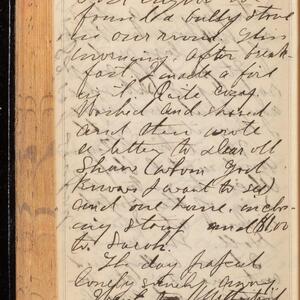 found a bully stove
in our room. This
morning, after break-
fast, I made a fire
in it. Quite cozy.
Washed and shaved
and then wrote
a letter to dear old
Shaw (whom God
knows I want to see)
and one home, inclos-
ing stamp and $1.00
to Sarah.
The day perfect
lonely sunday